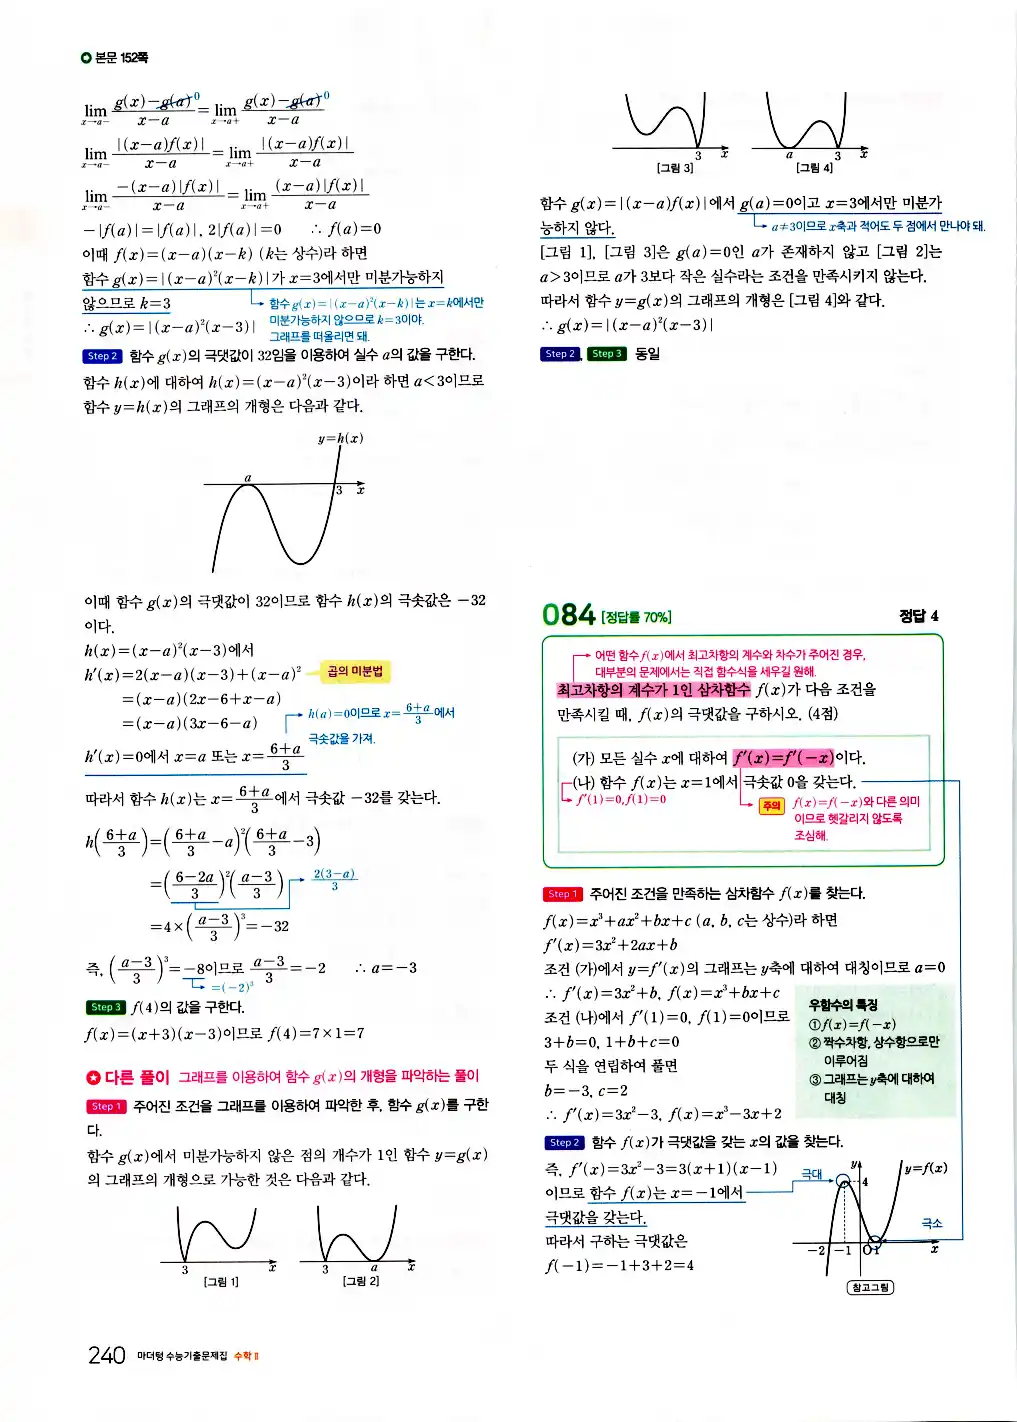 본문 152쪽
lim x→a− g(x)−g(a) 0 / x−a = lim x→a+ g(x)−g(a) 0 / x−a
lim x→a− |(x−a)f(x)| / x−a = lim x→a+ |(x−a)f(x)| / x−a
lim x→a− −(x−a)|f(x)| / x−a = lim x→a+ (x−a)|f(x)| / x−a
−|f(a)|=|f(a)|, 2|f(a)|=0 ∴ f(a)=0
이때 f(x)=(x−a)(x−k) (k는 상수)라 하면
함수 g(x)=|(x−a)²(x−k)|가 x=3에서만 미분가능하지
않으므로 k=3
함수 g(x)=|(x−a)²(x−k)|는 x=k에서만
미분가능하지 않으므로 k=3이야.
그래프를 떠올리면 돼.
∴ g(x)=|(x−a)²(x−3)|
Step 2 함수 g(x)의 극댓값이 32임을 이용하여 실수 a의 값을 구한다.
함수 h(x)에 대하여 h(x)=(x−a)²(x−3)이라 하면 a<3이므로
함수 y=h(x)의 그래프의 개형은 다음과 같다.
y=h(x)
a
3 x
이때 함수 g(x)의 극댓값이 32이므로 함수 h(x)의 극솟값은 −32
이다.
h(x)=(x−a)²(x−3)에서
h′(x)=2(x−a)(x−3)+(x−a)² 곱의 미분법
=(x−a)(2x−6+x−a)
=(x−a)(3x−6−a)
h(a)=0이므로 x=(6+a)/3에서
극솟값을 가져.
h′(x)=0에서 x=a 또는 x=(6+a)/3
따라서 함수 h(x)는 x=(6+a)/3에서 극솟값 −32를 갖는다.
h((6+a)/3)=((6+a)/3−a)²((6+a)/3−3)
=((6−2a)/3)²((a−3)/3) 2(3−a)/3
=4×((a−3)/3)³=−32
즉, ((a−3)/3)³=−8이므로 (a−3)/3=−2 ∴ a=−3
=(−2)³
Step 3 f(4)의 값을 구한다.
f(x)=(x+3)(x−3)이므로 f(4)=7×1=7
다른 풀이 그래프를 이용하여 함수 g(x)의 개형을 파악하는 풀이
Step 1 주어진 조건을 그래프를 이용하여 파악한 후, 함수 g(x)를 구한
다.
함수 g(x)에서 미분가능하지 않은 점의 개수가 1인 함수 y=g(x)
의 그래프의 개형으로 가능한 것은 다음과 같다.
3 x 3 a x
[그림 1] [그림 2]
240 마더텅 수능기출문제집 수학 II
3 x a 3 x
[그림 3] [그림 4]
함수 g(x)=|(x−a)f(x)|에서 g(a)=0이고 x=3에서만 미분가
능하지 않다. a≠3이므로 x축과 적어도 두 점에서 만나야 돼.
[그림 1], [그림 3]은 g(a)=0인 a가 존재하지 않고 [그림 2]는
a>3이므로 a가 3보다 작은 실수라는 조건을 만족시키지 않는다.
따라서 함수 y=g(x)의 그래프의 개형은 [그림 4]와 같다.
∴ g(x)=|(x−a)²(x−3)|
Step 2, Step 3 동일
084 [정답률 70%] 정답 4
어떤 함수 f(x)에서 최고차항의 계수와 차수가 주어진 경우,
대부분의 문제에서는 직접 함수식을 세우길 원해.
최고차항의 계수가 1인 삼차함수 f(x)가 다음 조건을
만족시킬 때, f(x)의 극댓값을 구하시오. (4점)
(가) 모든 실수 x에 대하여 f′(x)=f′(−x)이다.
(나) 함수 f(x)는 x=1에서 극솟값 0을 갖는다.
f′(1)=0, f(1)=0
주의 f(x)=f(−x)와 다른 의미
이므로 헷갈리지 않도록
조심해.
Step 1 주어진 조건을 만족하는 삼차함수 f(x)를 찾는다.
f(x)=x³+ax²+bx+c (a, b, c는 상수)라 하면
f′(x)=3x²+2ax+b
조건 (가)에서 y=f′(x)의 그래프는 y축에 대하여 대칭이므로 a=0
∴ f′(x)=3x²+b, f(x)=x³+bx+c
조건 (나)에서 f′(1)=0, f(1)=0이므로
3+b=0, 1+b+c=0
두 식을 연립하여 풀면
b=−3, c=2
∴ f′(x)=3x²−3, f(x)=x³−3x+2
우함수의 특징
① f(x)=f(−x)
② 짝수차항, 상수항으로만
이루어짐
③ 그래프는 y축에 대하여
대칭
Step 2 함수 f(x)가 극댓값을 갖는 x의 값을 찾는다.
즉, f′(x)=3x²−3=3(x+1)(x−1)
이므로 함수 f(x)는 x=−1에서
극댓값을 갖는다.
따라서 구하는 극댓값은
f(−1)=−1+3+2=4
극대 y y=f(x)
4
극소
−2 −1 O 1 x
참고그림